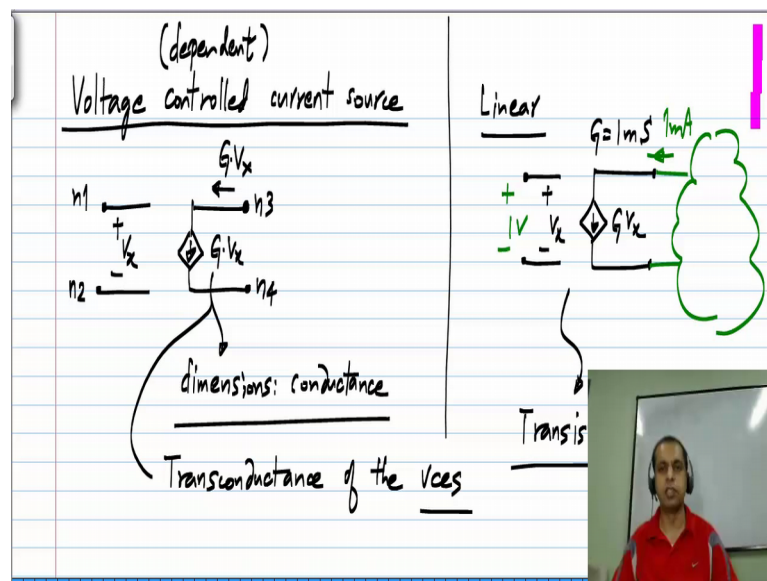 (dependent)
Voltage controlled current source
G·Vx
n1
+
Vx
-
n2
n3
G·Vx
n4
dimensions: conductance
Transconductance of the vccs
Linear
G=1mS
1mA
+
1V
-
+
Vx
-
GVx
Transis